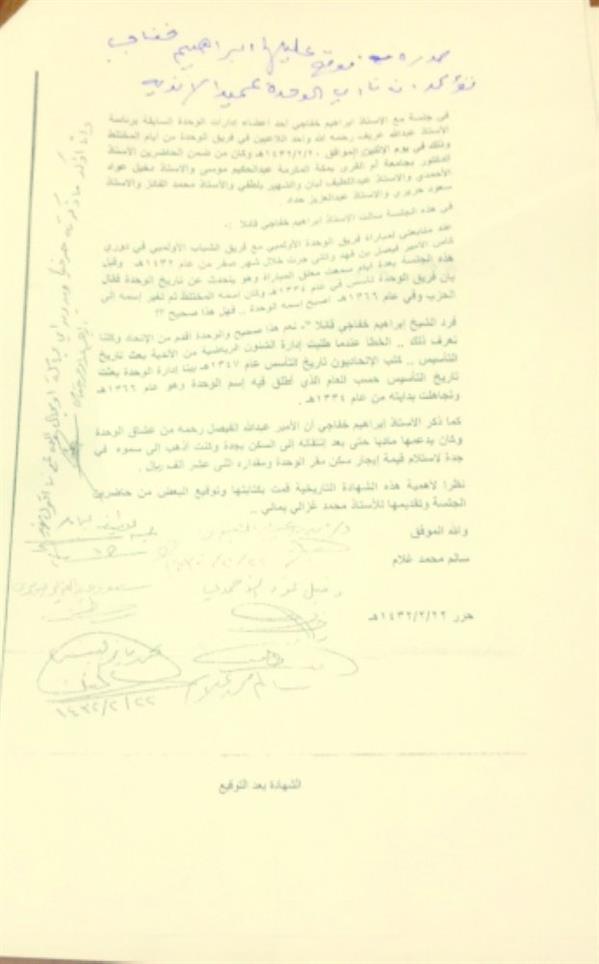 صوره موقع عليها ابراهيم خفاجي
تؤكد ان نادي الوحدة عميد الانديه
في جلسة مع الاستاذ ابراهيم خفاجي احد اعضاء إدارات الوحدة السابقة برئاسة
الأستاذ عبدالله عريف رحمه الله واحد اللاعبين في فريق الوحدة من أيام المختلط
وذلك في يوم الاثنين الموافق ١٤٣٢/٢/٢٠هـ وكان من ضمن الحاضرين الأستاذ
الدكتور بجامعة أم القرى بمكة المكرمة عبدالحكيم موسى والاستاذ دخيل عواد
الأحمدي والاستاذ عبداللطيف لبان والشهير بلطفي والأستاذ محمد الفائز والاستاذ
سعود حريري والاستاذ عبدالعزيز حداد
في هذه الجلسة سالت الإستاذ ابراهيم خفاجي قائلا :-
عند متابعتي لمباراة فريق الوحدة الأولمبي مع فريق الشباب الأولمبي في دوري
كاس الأمير فيصل بن فهد والتي جرت خلال شهر صفر من عام ١٤٣٢هـ وقبل
هذه الجلسة بعدة أيام سمعت معلق المباراة وهو يتحدث عن تاريخ الوحدة فقال
بان فريق الوحدة تأسس في عام ١٣٣٤هـ وكان اسمه المختلط ثم تغير إسمه إلى
الحزب وفي عام ١٣٦٦هـ اصبح إسمه الوحدة .. فهل هذا صحيح ؟!
فرد الشيخ إبراهيم خفاجي قائلا :- نعم هذا صحيح والوحدة أقدم من الإتحاد وكلنا
نعرف ذلك .. الخطا عندما طلبت إدارة الشئون الرياضية من الأندية بعث تاريخ
التأسيس .. كتب الإتحاديون تاريخ التأسس عام ١٣٤٧هـ بينا إدارة الوحدة بعثت
تاريخ التأسيس حسب العام الذي أطلق فيه إسم الوحدة وهو عام ١٣٦٦هـ
وتجاهلت بدايته من عام ١٣٣٤هـ .
كما ذكر الأستاذ إبراهيم خفاجي أن الأمير عبدالله الفيصل رحمه من عشاق الوحدة
وكان يدعمها ماديا حتى بعد إنتقاله إلى السكن بجدة وكنت أذهب إلى سموه في
جدة لاستلام قيمة إيجار سكن مقر الوحدة ومقداره اثنى عشر الف ريال .
نظرا لاهمية هذه الشهادة التاريخية قمت بكتابتها وتوقيع البعض من حاضرين
الجلسة وتقديمها للأستاذ محمد غزالي يماني ..
والله الموفق
سالم محمد غلام
دخيل عواد الأحمدي
حرر ١٤٣٢/٢/٢٢هـ
سالم محمد غلام
١٤٣٢/٢/٢٢
الشهادة بعد التوقيع